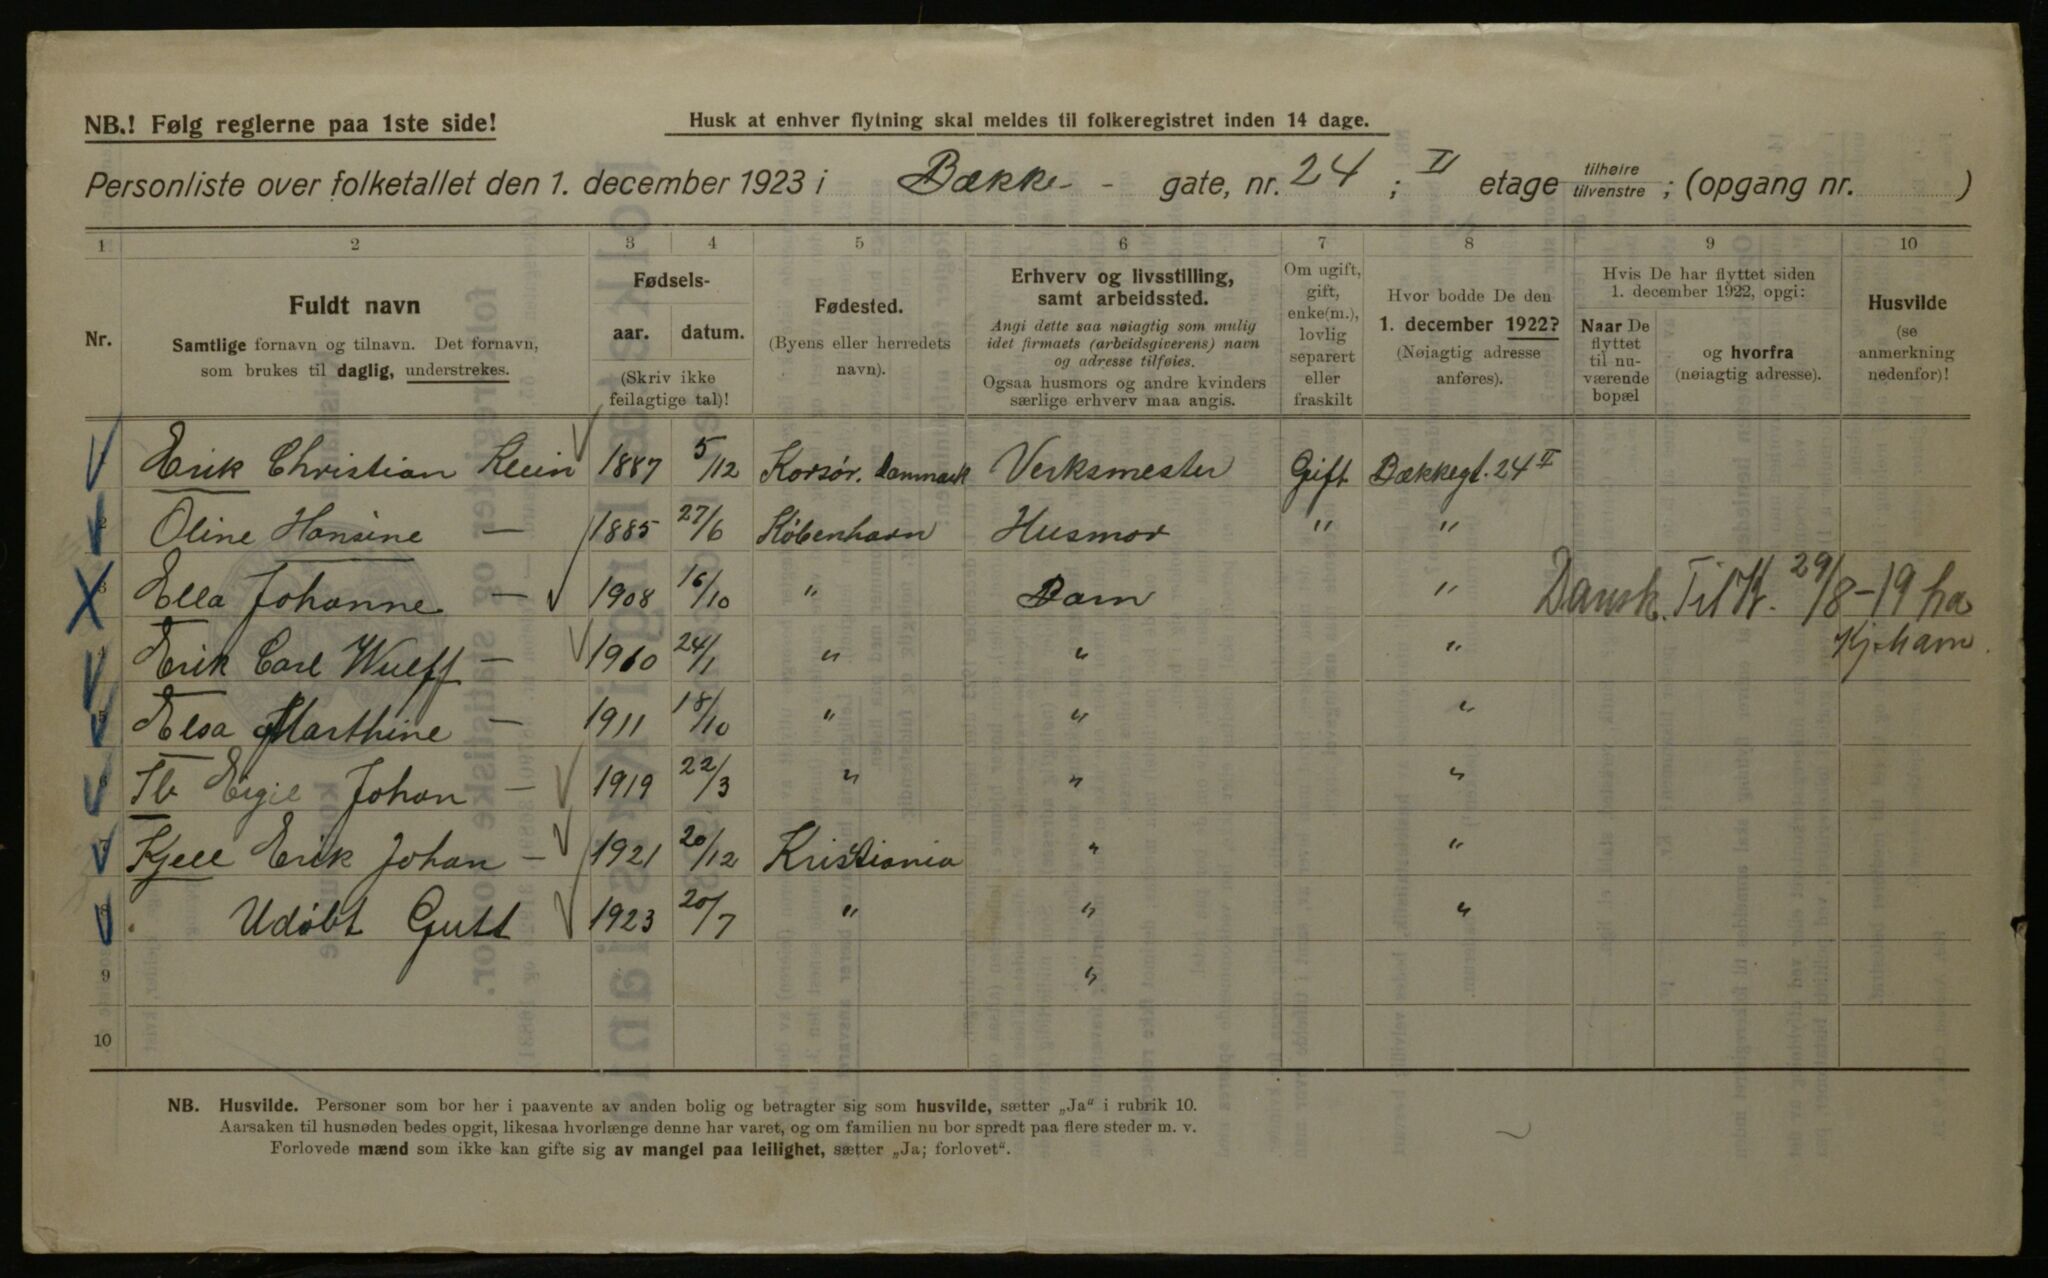 NB.! Følg reglerne paa 1ste side!
Husk at enhver flytning skal meldes til folkeregistret inden 14 dage.
Personliste over folketallet den 1. december 1923 i Bække- - gate, nr. 24 ; II etage tilhøire tilvenstre ; (opgang nr. )
1 2 3 4 5 6 7 8 9 10
Nr.
Fuldt navn
Samtlige fornavn og tilnavn. Det fornavn,
som brukes til daglig, understrekes.
Fødsels-
aar. datum.
(Skriv ikke
feilagtige tal)!
Fødested.
(Byens eller herredets
navn).
Erhverv og livsstilling,
samt arbeidssted.
Angi dette saa nøiagtig som mulig
idet firmaets (arbeidsgiverens) navn
og adresse tilføies.
Ogsaa husmors og andre kvinders
særlige erhverv maa angis.
Om ugift,
gift,
enke(m.),
lovlig
separert
eller
fraskilt
Hvor bodde De den
1. december 1922?
(Nøiagtig adresse
anføres).
Hvis De har flyttet siden
1. december 1922, opgi:
Naar De
flyttet
til nu-
værende
bopæl
og hvorfra
(nøiagtig adresse).
Husvilde
(se
anmerkning
nedenfor)!
Erik Christian Klein 1887 5/12 Korsør. Danmark Verksmester Gift Bækkegt. 24 II
2 Oline Hansine — 1885 27/6 København Husmor " "
3 Ella Johanne — 1908 16/10 " Barn " Dansk. Til K. 29/8-19 fra
Kj.havn.
Erik Carl Wulff — 1910 24/1 " " "
5 Elsa Marthine — 1911 18/10 " " "
6 Eigil Johan — 1919 22/3 " " "
7 Kjell Erik Johan — 1921 20/12 Kristiania " "
8 Udøbt Gutt 1923 20/7 " " "
9 "
10
NB. Husvilde. Personer som bor her i paavente av anden bolig og betragter sig som husvilde, sætter „Ja“ i rubrik 10.
Aarsaken til husnøden bedes opgit, likesaa hvorlænge denne har varet, og om familien nu bor spredt paa flere steder m. v.
Forlovede mænd som ikke kan gifte sig av mangel paa leilighet, sætter „Ja; forlovet“.